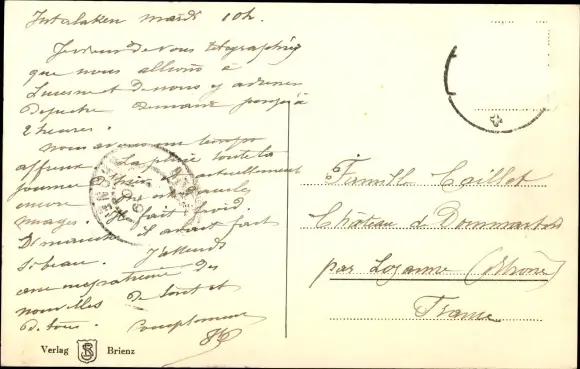 Interlaken mardi 10h.
Je viens de vous télégraphier
que nous allons à
Lucerne et de nous y adresser
dépêche demain jusqu'à
2 heures.
Nous avons un temps
affreux la pluie toute la
journée hier actuellement
encore
nuages. Il fait froid.
Dimanche il avait fait
si beau. J'attends
avec impatience des
nouvelles de tout et
de tous.
Famille Caillot
Château de Dommartin
par Lozanne (Rhône)
France
Verlag Brienz